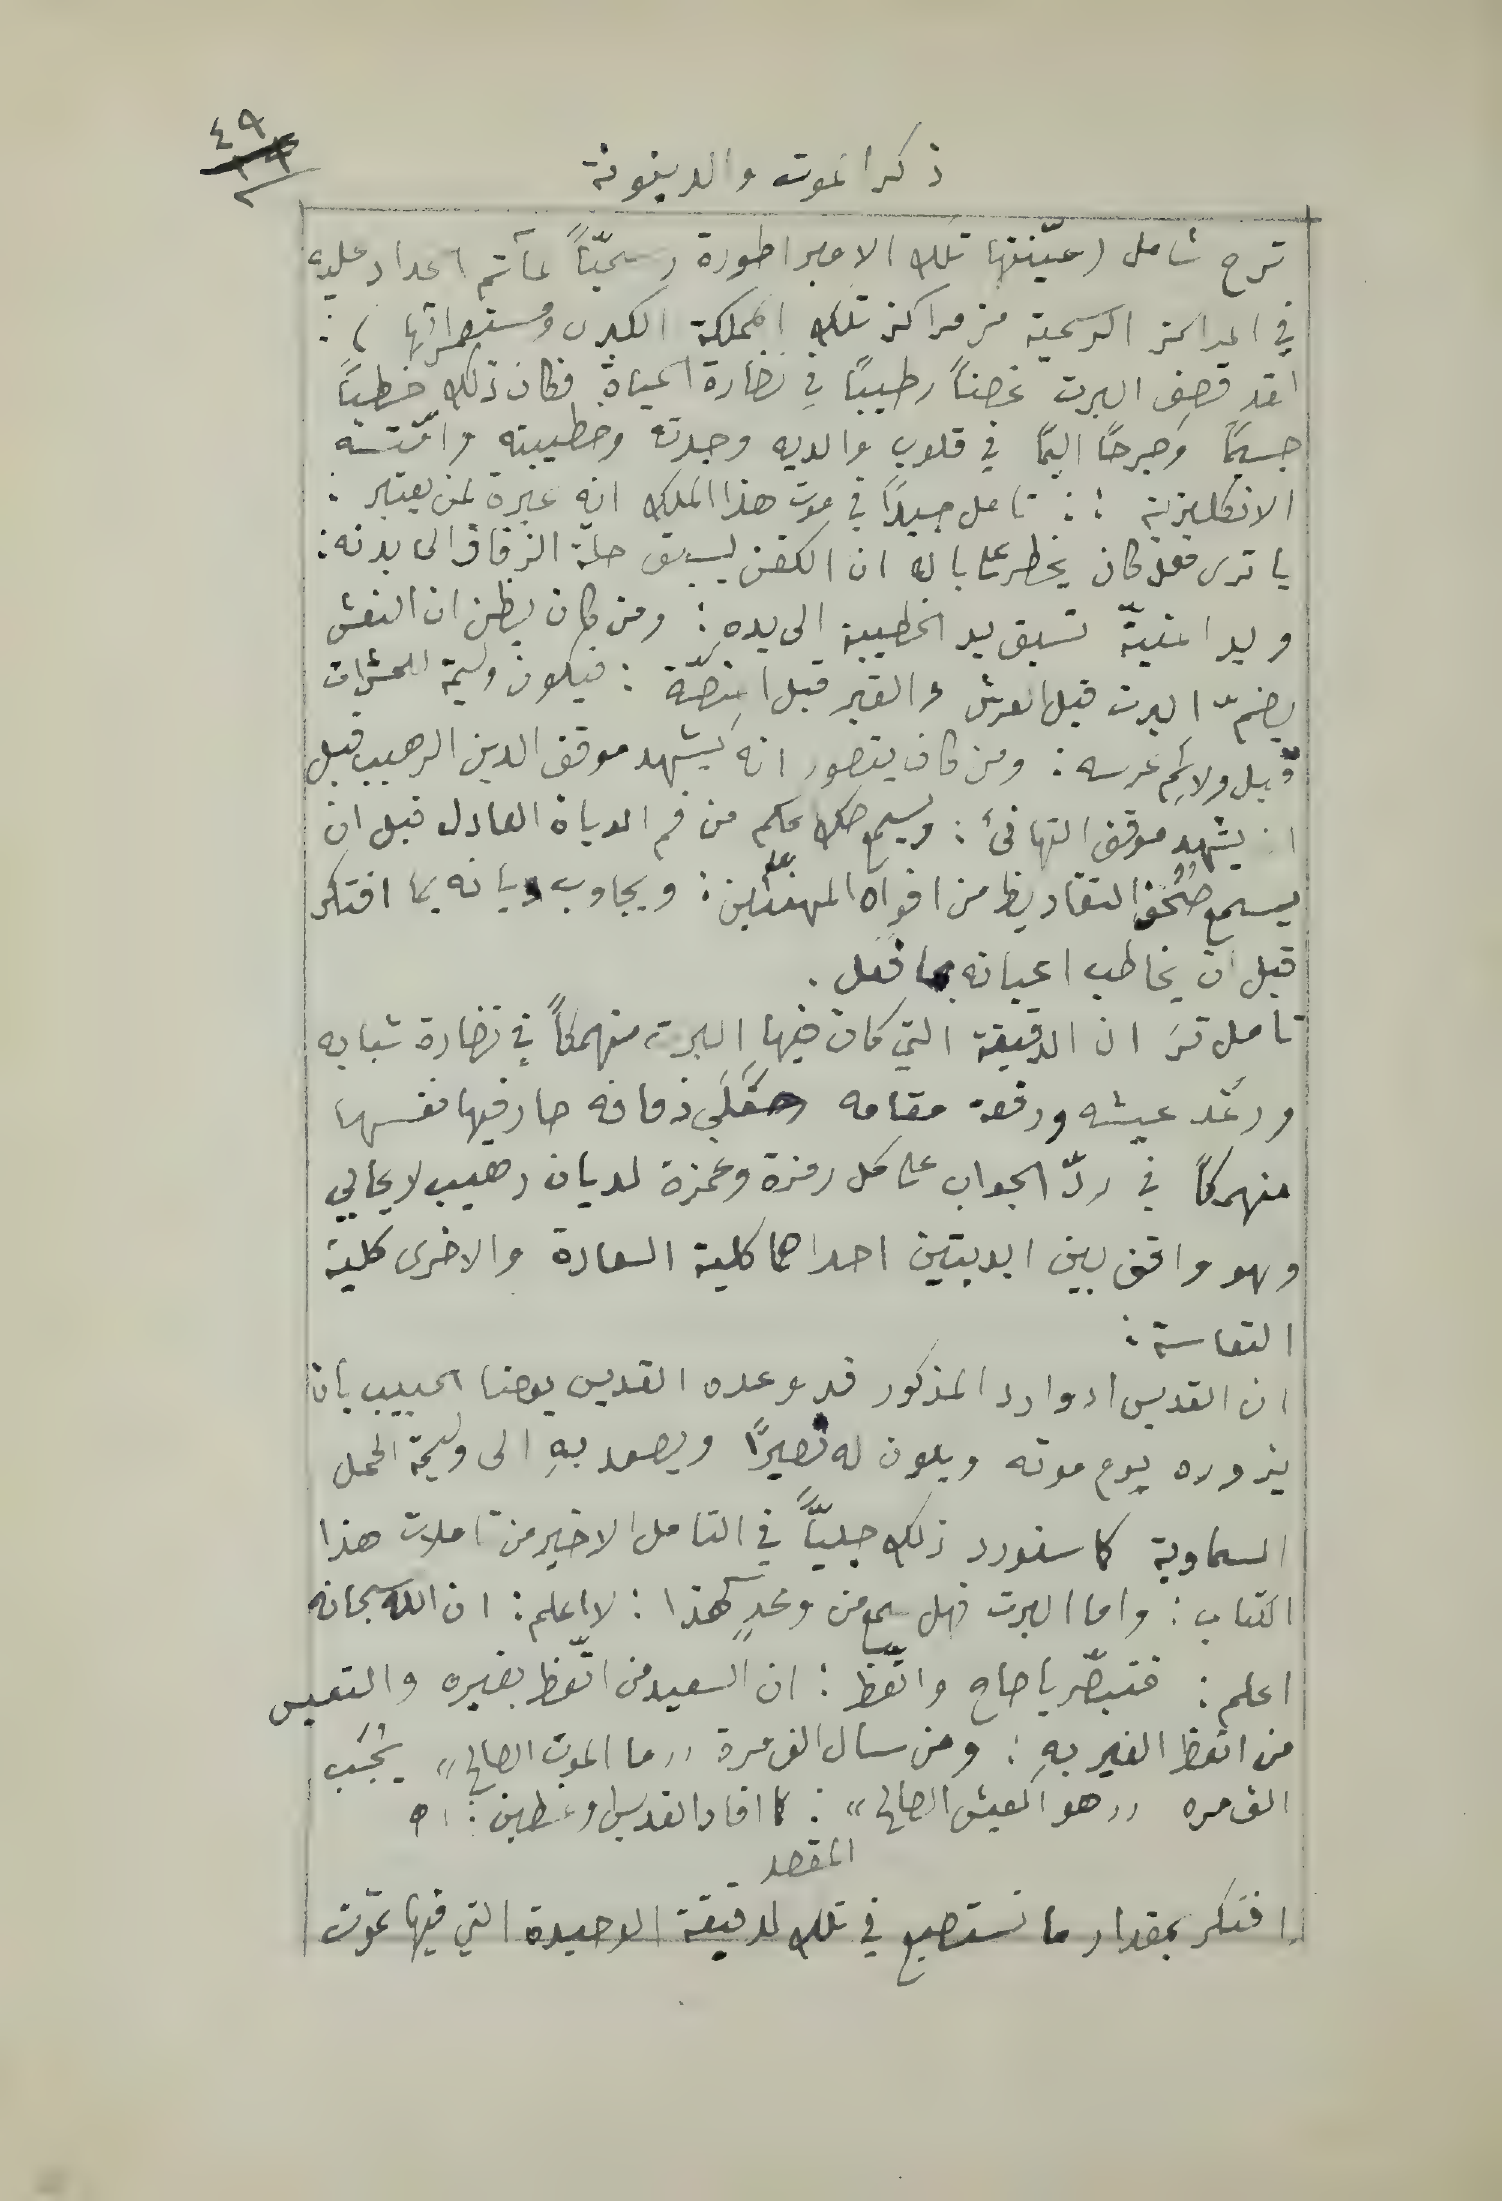 ٤٩
ذكر الموت والدينونة
ترح شامل (عيّنتها تلك الامبراطورة رسميّاً مآتم اعداد عليه
في المراكز الرسمية من مراكز تلك المملكة الكبرى ومستعمراتها ) :
لقد قصف البرت غصناً رطيباً في نضارة الحياة فكان ذلك خطباً
جسيمًا وجرحًا اليمًا في قلوب والديه وجدته وخطيبته وامّته
الانكليزية : : تامل جيداً في موت هذا الملك انه عبرة لمن يعتبر :
يا ترى فهل كان يخطر على باله ان الكفن يسبق حلة الزفاف الى بدنه :
ويد المنيّة تسبق يد الخطيبة الى يده : ومن كان يظن ان النعش
يضمّ البرت قبل العرش والقبر قبل المنصّة : فيكون وليمة للحشرات
قبل ولائم عرسه : ومن كان يتصور انه يشهد موقف الدين الرهيب قبل
ان يشهد موقف التهانئ : ويسمع صك حكم من فم الديان العادل قبل ان
يسمع صحف التقاريظ من افواه المهنئين : ويجاوب ديانه بما افتكر
قبل ان يخاطب اعيانه بما فعل .
تامل ترَ ان الدقيقة التي كان فيها البرت منهمكاً في نضارة شبابه
ورغد عيشه ورفعة مقامه زفافه صار فيها نفسها
منهمكاً في ردّ الجواب على كل رمزة وغمزة لديان رهيب لا يحابي
وهو واقف بين ابديتين احداهما كلية السعادة والاخرى كلية
التعاسة :
ان القديس ادوارد المذكور قد وعده القديس يوحنا الحبيب بان
يزوره يوم موته ويكون له نصيرًا ويصعد بهِ الى وليمة الحمل
السماوية كما سنورد ذلك جليّاً في التامل الاخير من تاملات هذا
الكتاب : واما البرت فهل سمع من وعدٍ كهذا : لا اعلم : ان الله سبحانه
اعلم : فتبصّر يا صاح واتّعظ : ان السعيد من اتّعظ بغيره والتعيس
من اتعظ الغير بهِ : ومن سال الف مرة ,, ما الموت الصالح ,, يُجَب
الف مره ,, هو العيش الصالح ,, : كما افاد القديس اوغسطين : اه
المقصد
افتكر بمقدار ما تستطيع في تلك الدقيقة الوحيدة التي فيها تموت